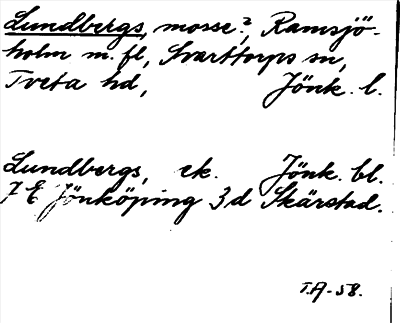 Lundbergs, mosse?, Ramsjö-
holm m. fl., Svarttorps sn,
Tveta hd, Jönk. l.
Lundbergs, ek. Jönk. bl.
7 E Jönköping 3d Skärstad.
T.A-58.